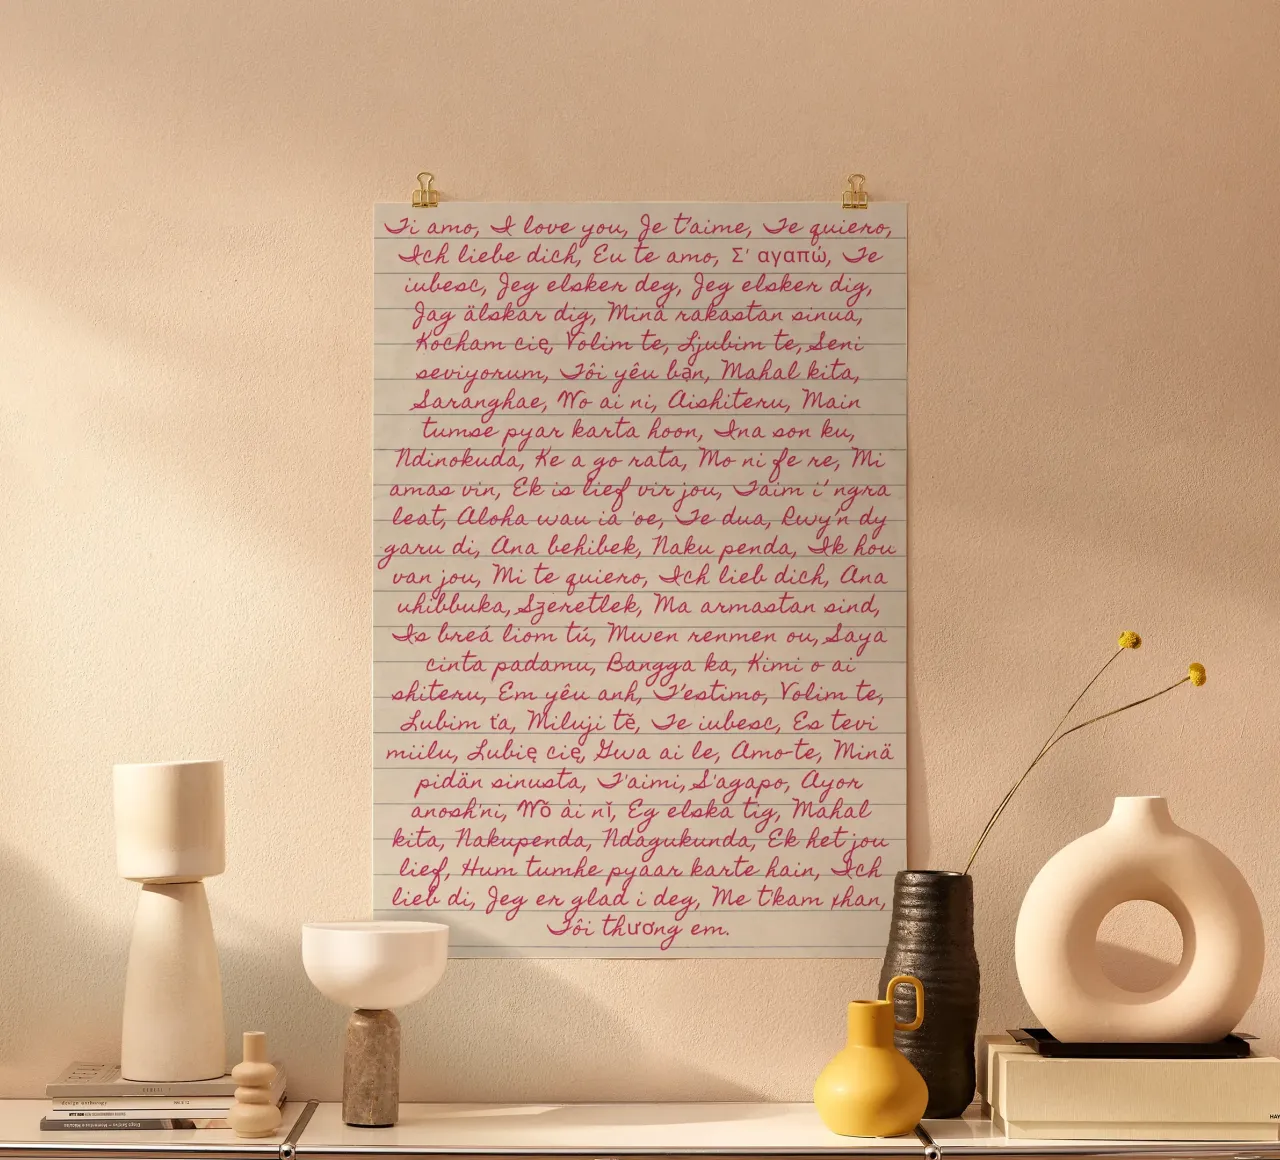 Ti amo, I love you, Je t'aime, Te quiero,
Ich liebe dich, Eu te amo, Σ' αγαπώ, Te
iubesc, Jeg elsker deg, Jeg elsker dig,
Jag älskar dig, Minä rakastan sinua,
Kocham cię, Volim te, Ljubim te, Seni
seviyorum, Tôi yêu bạn, Mahal kita,
Saranghae, Wo ai ni, Aishiteru, Main
tumse pyar karta hoon, Ina son ku,
Ndinokuda, Ke a go rata, Mo ni fe re, Mi
amas vin, Ek is lief vir jou, Taim i' ngra
leat, Aloha wau ia 'oe, Te dua, Rwy'n dy
garu di, Ana behibek, Naku penda, Ik hou
van jou, Mi te quiero, Ich lieb dich, Ana
uhibbuka, Szeretlek, Ma armastan sind,
Is breá liom tú, Mwen renmen ou, Saya
cinta padamu, Bangga ka, Kimi o ai
shiteru, Em yêu anh, T'estimo, Volim te,
Lubim ťa, Miluji tě, Te iubesc, Es tevi
miilu, Lubię cię, Gwa ai le, Amo-te, Minä
pidän sinusta, T'aimi, S'agapo, Ayor
anosh'ni, Wǒ ài nǐ, Eg elska tig, Mahal
kita, Nakupenda, Ndagukunda, Ek het jou
lief, Hum tumhe pyaar karte hain, Ich
lieb di, Jeg er glad i deg, Me t'kam xhan,
Tôi thương em.
HAY